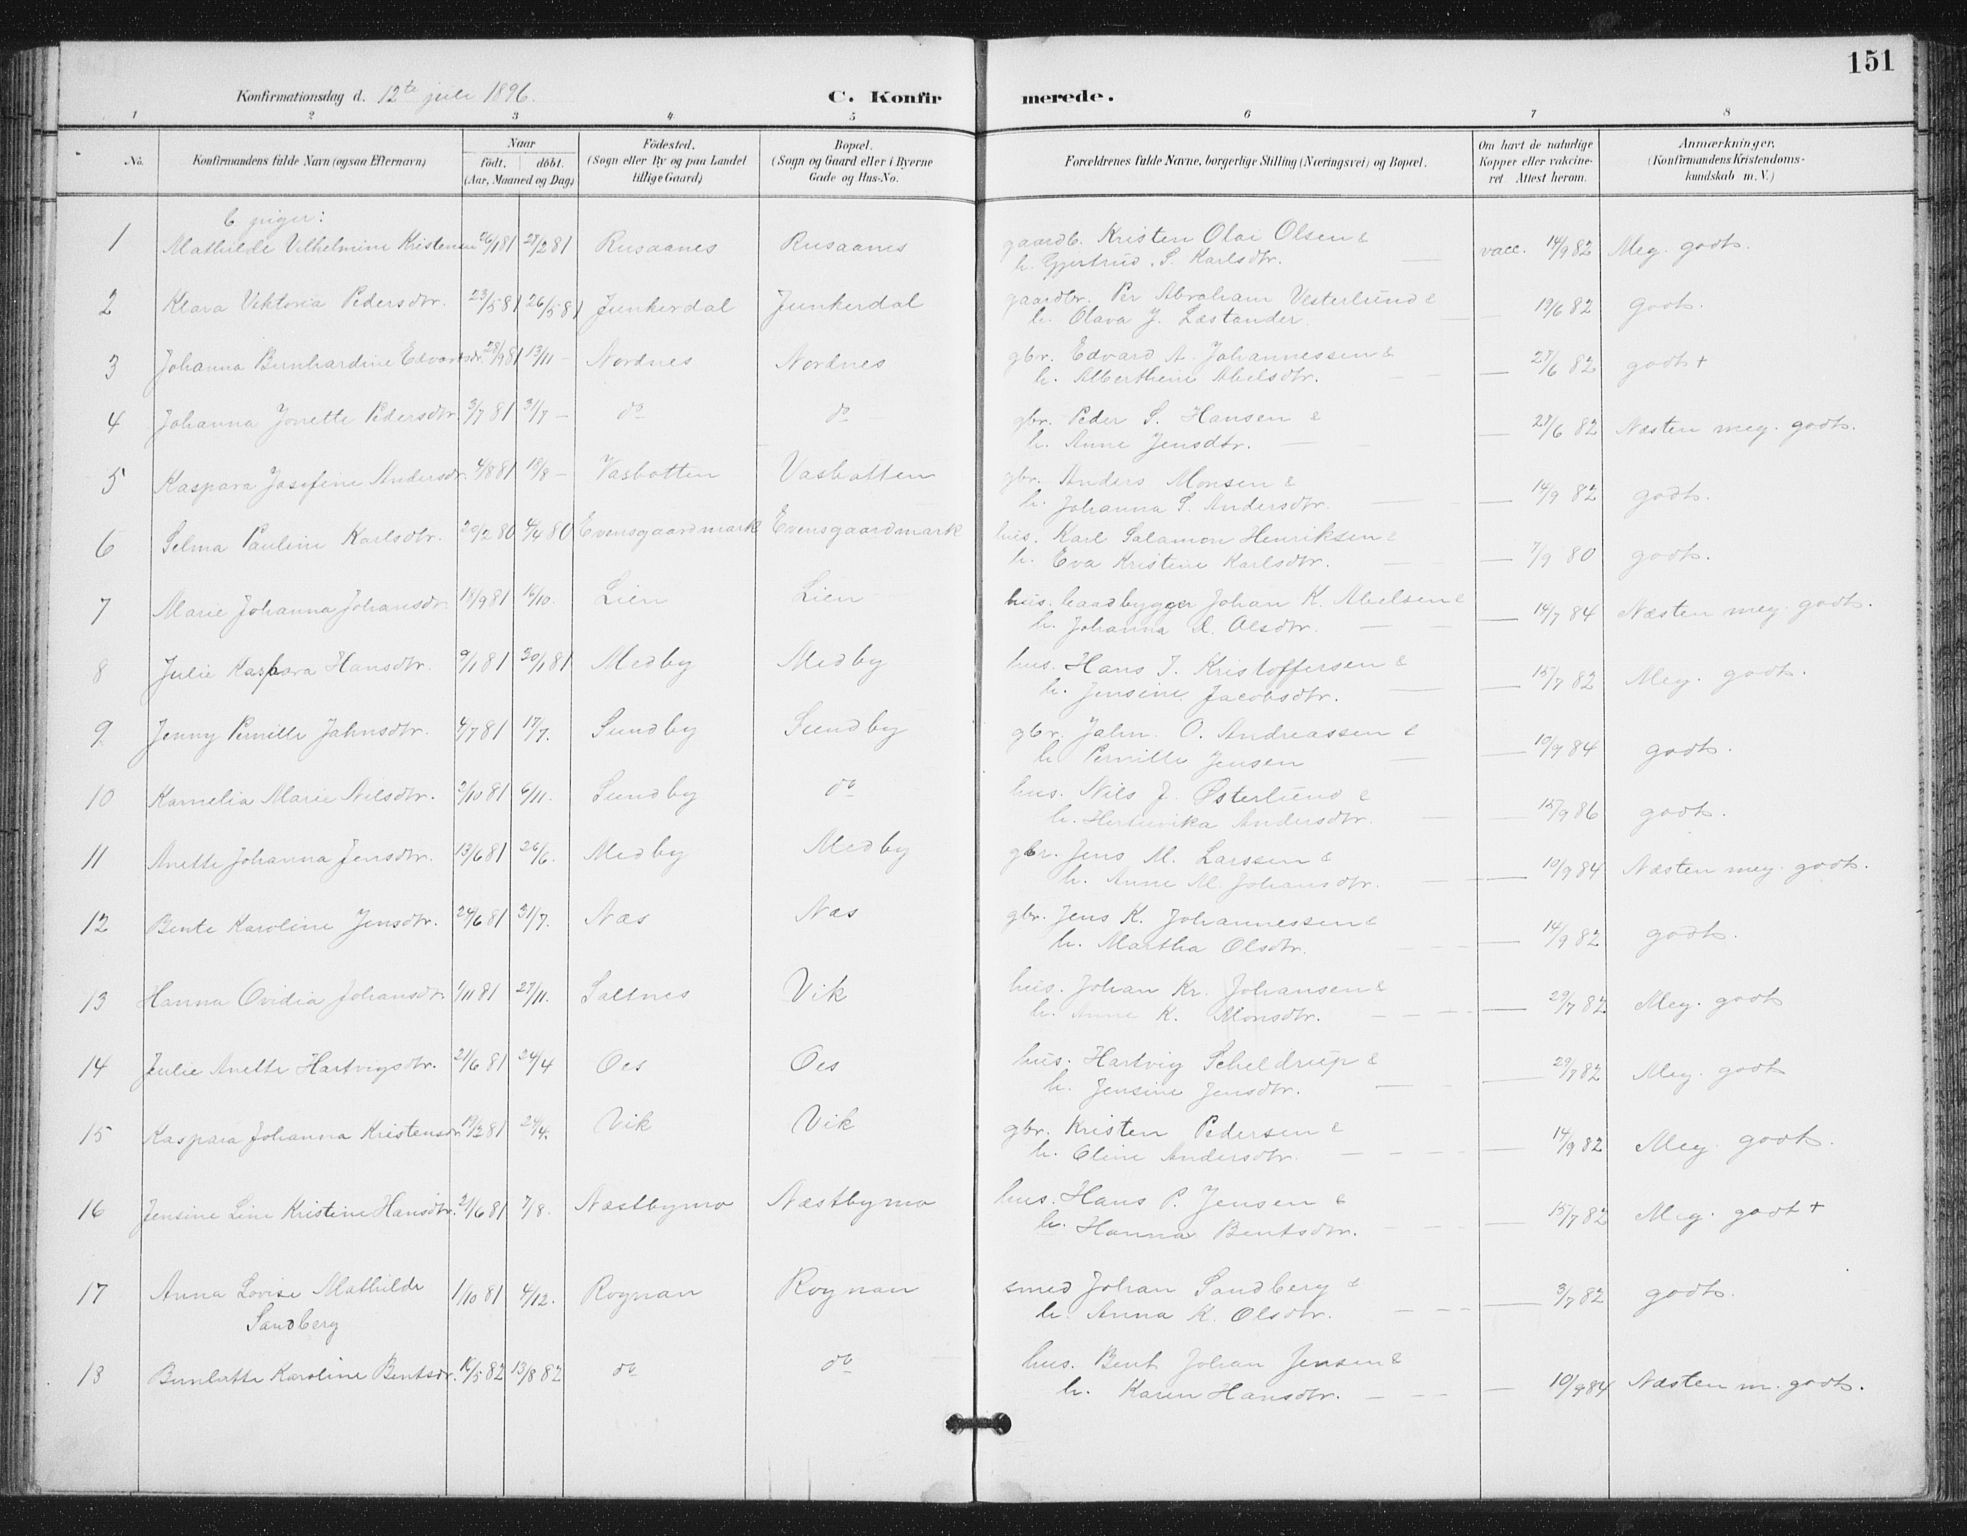 151
Konfirmationsdag d. 12te juli 1896. C. Konfir merede.
1 2 3 4 5 6 7 8
No. Konfirmandens fulde Navn (ogsaa Efternavn) Naar født. døbt. (Aar, Maaned og Dag) Fødested. (Sogn eller By og paa Landet tillige Gaard) Bopæl. (Sogn og Gaard eller i Byerne Gade og Hus-No. Forældrenes fulde Navne, borgerlige Stilling (Næringsvei) og Bopæl. Om havt de naturlige Kopper eller vakcineret Attest herom. Anmærkninger. (Konfirmandens Kristendomskundskab m. V.)
piger:
1 Mathilde Vilhelmine Kristensen 26/1 81 27/2 81 Rusaanes Rusaanes gaardb. Kristen Olai Olsen & vacc. 14/9 82 Meg. godt.
h. Gjertrud. S. Karlsdtr. —
2 Klara Viktoria Pedersdtr. 23/5 81 26/5 81 Junkerdal Junkerdal gaardbr. Per Abraham Vesterlund & — 19/6 82 godt.
h. Olava J. Læstander —
3 Johanna Bernhardine Edvartsdr. 28/9 81 13/11 — Nordnes Nordnes gbr. Edvard A. Johannessen & — 27/6 82 godt +
h. Alberthine Abelsdtr. — —
4 Johanna Jonette Pedersdtr. 3/7 81 31/7 — do do gbr. Peder S. Hansen & — 27/6 82 Næsten meg. godt.
h. Anne Jensdtr. — —
5 Kaspara Josefine Andersdr. 4/8 81 19/8 — Vasbotten Vasbotten gbr. Anders Monsen & — 14/9 82 godt.
h. Johanna S. Andersdtr. — —
6 Selma Pauline Karlsdtr. 20/2 80 4/4 80 Evensgaardmark Evensgaardmark hus. Karl Salamon Henriksen & — 7/9 80 godt.
h. Eva Kristine Karlsdtr. — —
7 Marie Johanna Johansdr. 18/9 81 16/10. Lien Lien hus. baadbygger Johan K. Abelsen & — 14/7 84 Næsten meg. godt.
h. Johanna D. Olsdtr. — —
8 Julie Kaspara Hansdtr. 9/1 81 30/1 81 Medby Medby hus. Hans J. Kristoffersen & — 15/7 82 Meg. godt.
h. Jensine Jacobsdtr. —
9 Jenny Pernille Jahnsdtr. 4/7 81 17/7. Sundby Sundby gbr. Jahn. O. Andreassen & — 10/9 84 godt.
h. Pernille Jensen —
10 Kornelia Marie Nilsdtr. 2/10 81 6/11. Sundby do hus. Nils J. Østerlund & — 15/9 86 godt.
h. Andersdtr. — —
11 Anette Johanna Jensdtr. 13/6 81 26/6. Medby Medby gbr. Jens M. Larssen & — 10/9 84 Næsten meg. godt.
h. Anne M. Johansdtr. — —
12 Bente Karoline Jensdtr. 24/6 81 31/7. Næs Næs gbr. Jens K. Johannessen & — 14/9 82 godt.
h. Martha Olsdtr. — —
13 Hanna Ovidia Johansdtr 1/11 81 27/11. Saltnes Vik hus. Johan Kr. Johansen & — 29/7 82 Meg. godt
h. Anne K. Monsdtr. — — —
14 Julie Anette Hartvigsdtr. 21/6 81 24/4 Oes Oes hus. Hartvig Scheldrup & — 29/7 82 Meg. godt
h. Jensine Jensdtr. —
15 Kaspara Johanna Kristensdr. 19/2 81 24/4. Vik Vik gbr. Kristen Pedersen & — 14/9 82 Meg. godt.
h. Oline Andersdtr. — — —
16 Jensine Line Kristine Hansdtr. 21/6 81 7/8. Næstbymo Næstbymo hus. Hans P. Jensen & — 15/7 82 Meg. godt +
h. Hanna Bentsdtr. — —
17 Anna Lovise Mathilde 1/10 81 4/12. Rognan Rognan smed Johan Sandberg & — 3/7 82 godt.
Sandberg h. Anna K. Olsdtr. — —
18 Karoline Bentsdr. 12/5 82 13/8 82 do do hus. Bent Johan Jensen & — 10/9 84 Næsten m. godt.
h. Karen Hansdtr. — —